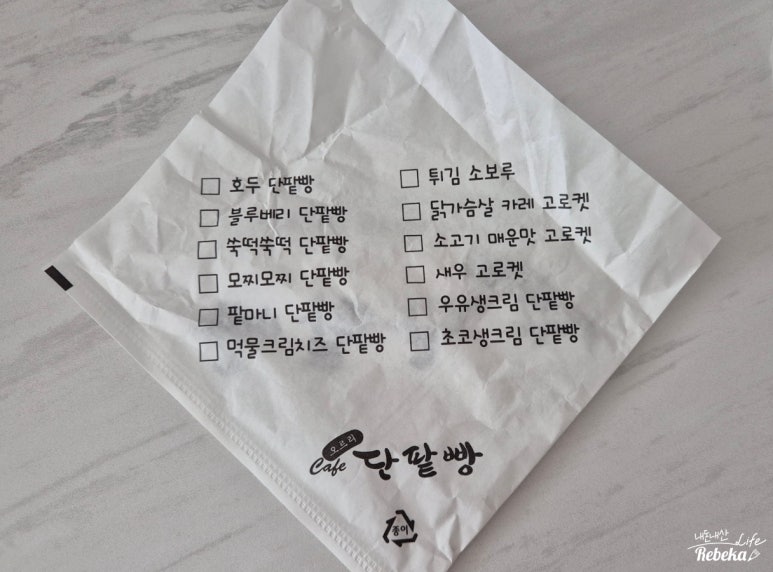 호두 단팥빵
블루베리 단팥빵
쑥떡쑥떡 단팥빵
모찌모찌 단팥빵
팥마니 단팥빵
먹물크림치즈 단팥빵
튀김 소보루
닭가슴살 카레 고로켓
소고기 매운맛 고로켓
새우 고로켓
우유생크림 단팥빵
초코생크림 단팥빵
오르리
Cafe 단팥빵
종이
내돈내산 Life
Rebeka